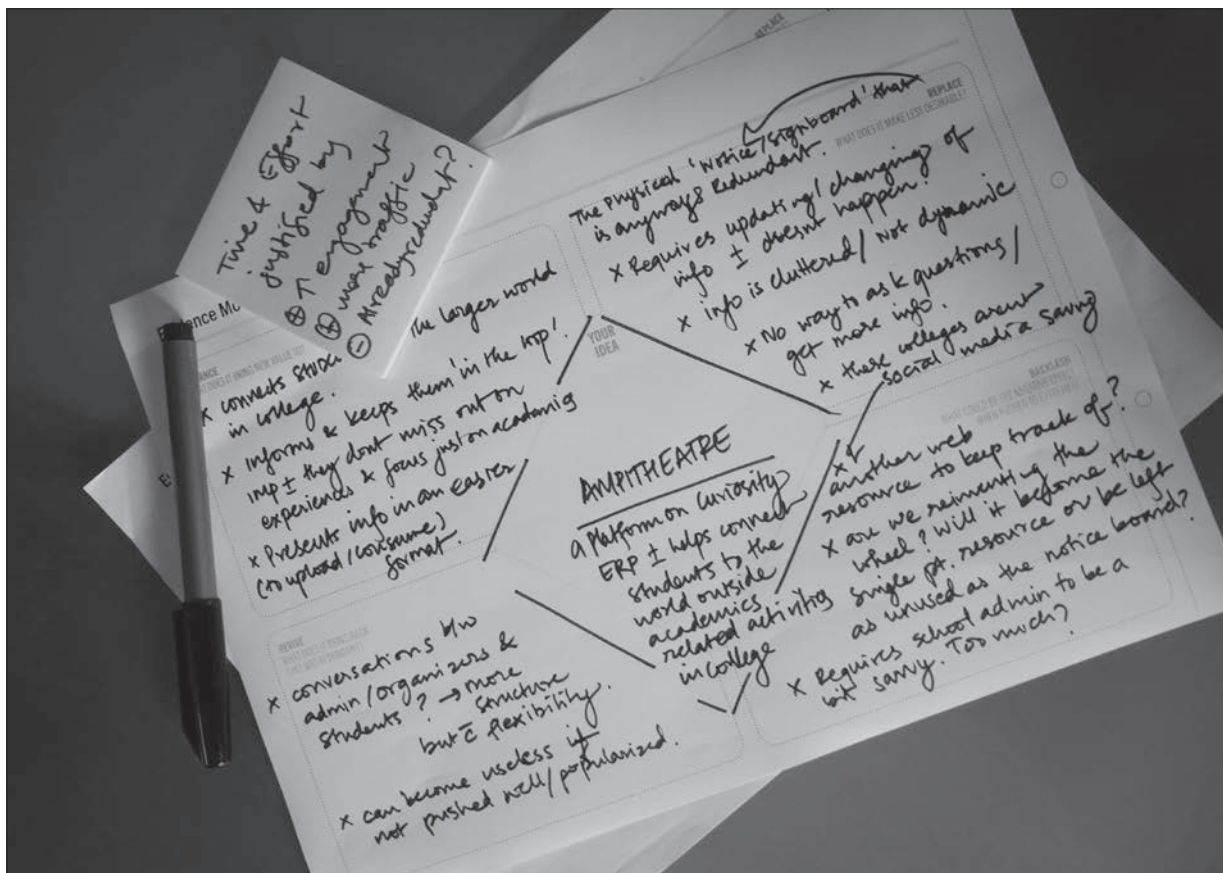 Time & Effort
justified by
⊕ ↑ engagement
⊕ more traffic
⊖ Already redundant?
REPLACE
WHAT DOES IT MAKE LESS DESIRABLE?
The physical 'notice/signboard' that
is anyways redundant.
x Requires updating/changing of
info ± doesnt happen.
x info is cluttered/not dynamic
x No way to ask questions/
get more info.
x these colleges arent
social media savvy
the larger world
in college.
x informs & keeps them 'in the loop'.
imp ± they dont miss out on
experiences & focus just on academics
x Presents info in an easier
(to upload/consume)
format.
YOUR
IDEA
AMPITHEATRE
a platform on curiosity
ERP ± helps connect
students to the
world outside
academics
related activities
in college
BACKLASH
WHAT COULD BE THE NEGATIVE EFFECT
WHEN PUSHED TO EXTREMES?
another web
resource to keep track of?
x are we reinventing the
wheel? Will it become the
single pt. resource or be left
as unused as the notice board?
x Requires school admin to be a
bit savvy. Too much?
REVIVE
x conversations b/w
admin/organizers &
students? → more
structure
but c̄ flexibility.
x can become useless if
not pushed well/popularized.